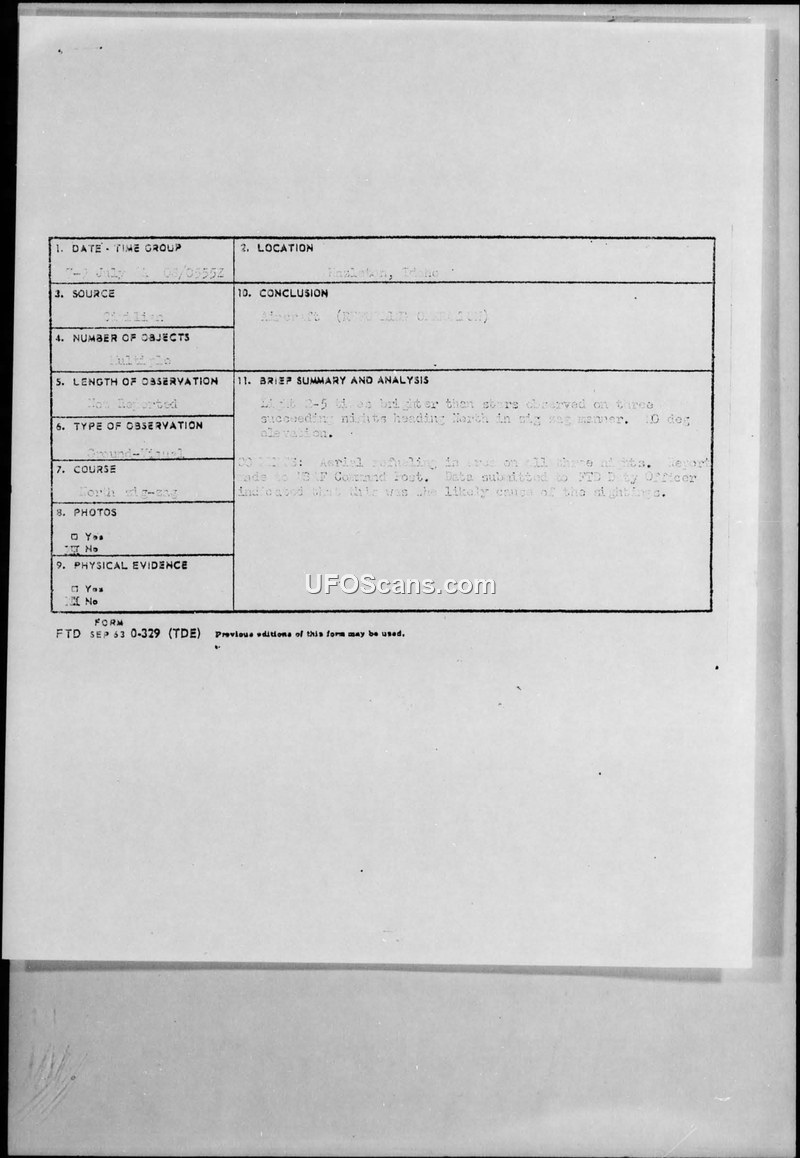 1. DATE - TIME GROUP
July
2. LOCATION
Hazleton, Idaho
3. SOURCE
Civilian
10. CONCLUSION
Aircraft (REFUELING OPERATION)
4. NUMBER OF OBJECTS
Multiple
5. LENGTH OF OBSERVATION
Not Reported
11. BRIEF SUMMARY AND ANALYSIS
Light 2-5 times brighter than stars observed on three
succeeding nights heading North in zig zag manner. deg
elevation.
6. TYPE OF OBSERVATION
Ground-Visual
7. COURSE
North zig-zag
COMMENTS: Aerial refueling in area on all three nights. Report
made to USAF Command Post. Data submitted to FTD Duty Officer
indicated that this was the likely cause of the sightings.
8. PHOTOS
□ Yes
☒ No
9. PHYSICAL EVIDENCE
□ Yes
☒ No
UFOScans.com
FORM
FTD SEP 63 0-329 (TDE) Previous editions of this form may be used.